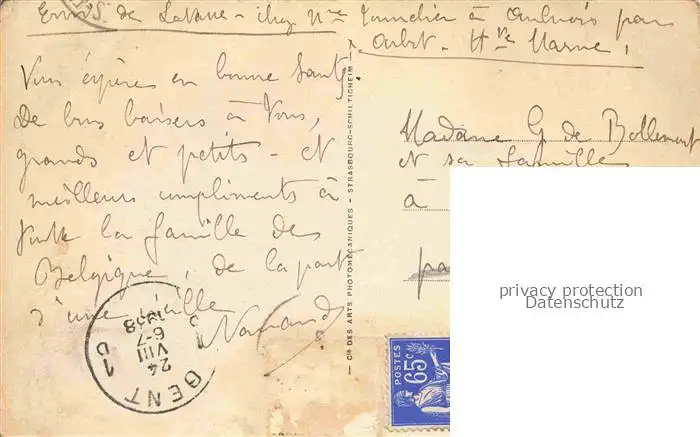 Envoi de Lavaue - chez Mme Tourdier à Aulnois par
Aubt. - Hte Marne,
Vous espère en bonne santé
De bons baisers à Vous,
grands et petits - et
meilleurs compliments à
toute la famille des
Belgique, de la part
d'une vieille
Madame G de
et sa famille
à
pa
Cie DES ARTS PHOTOMÉCANIQUES - STRASBOURG-SCHILTIGHEIM
privacy protection
Datenschutz
POSTES
65c
GENT 1
24
VIII
6-7
1938